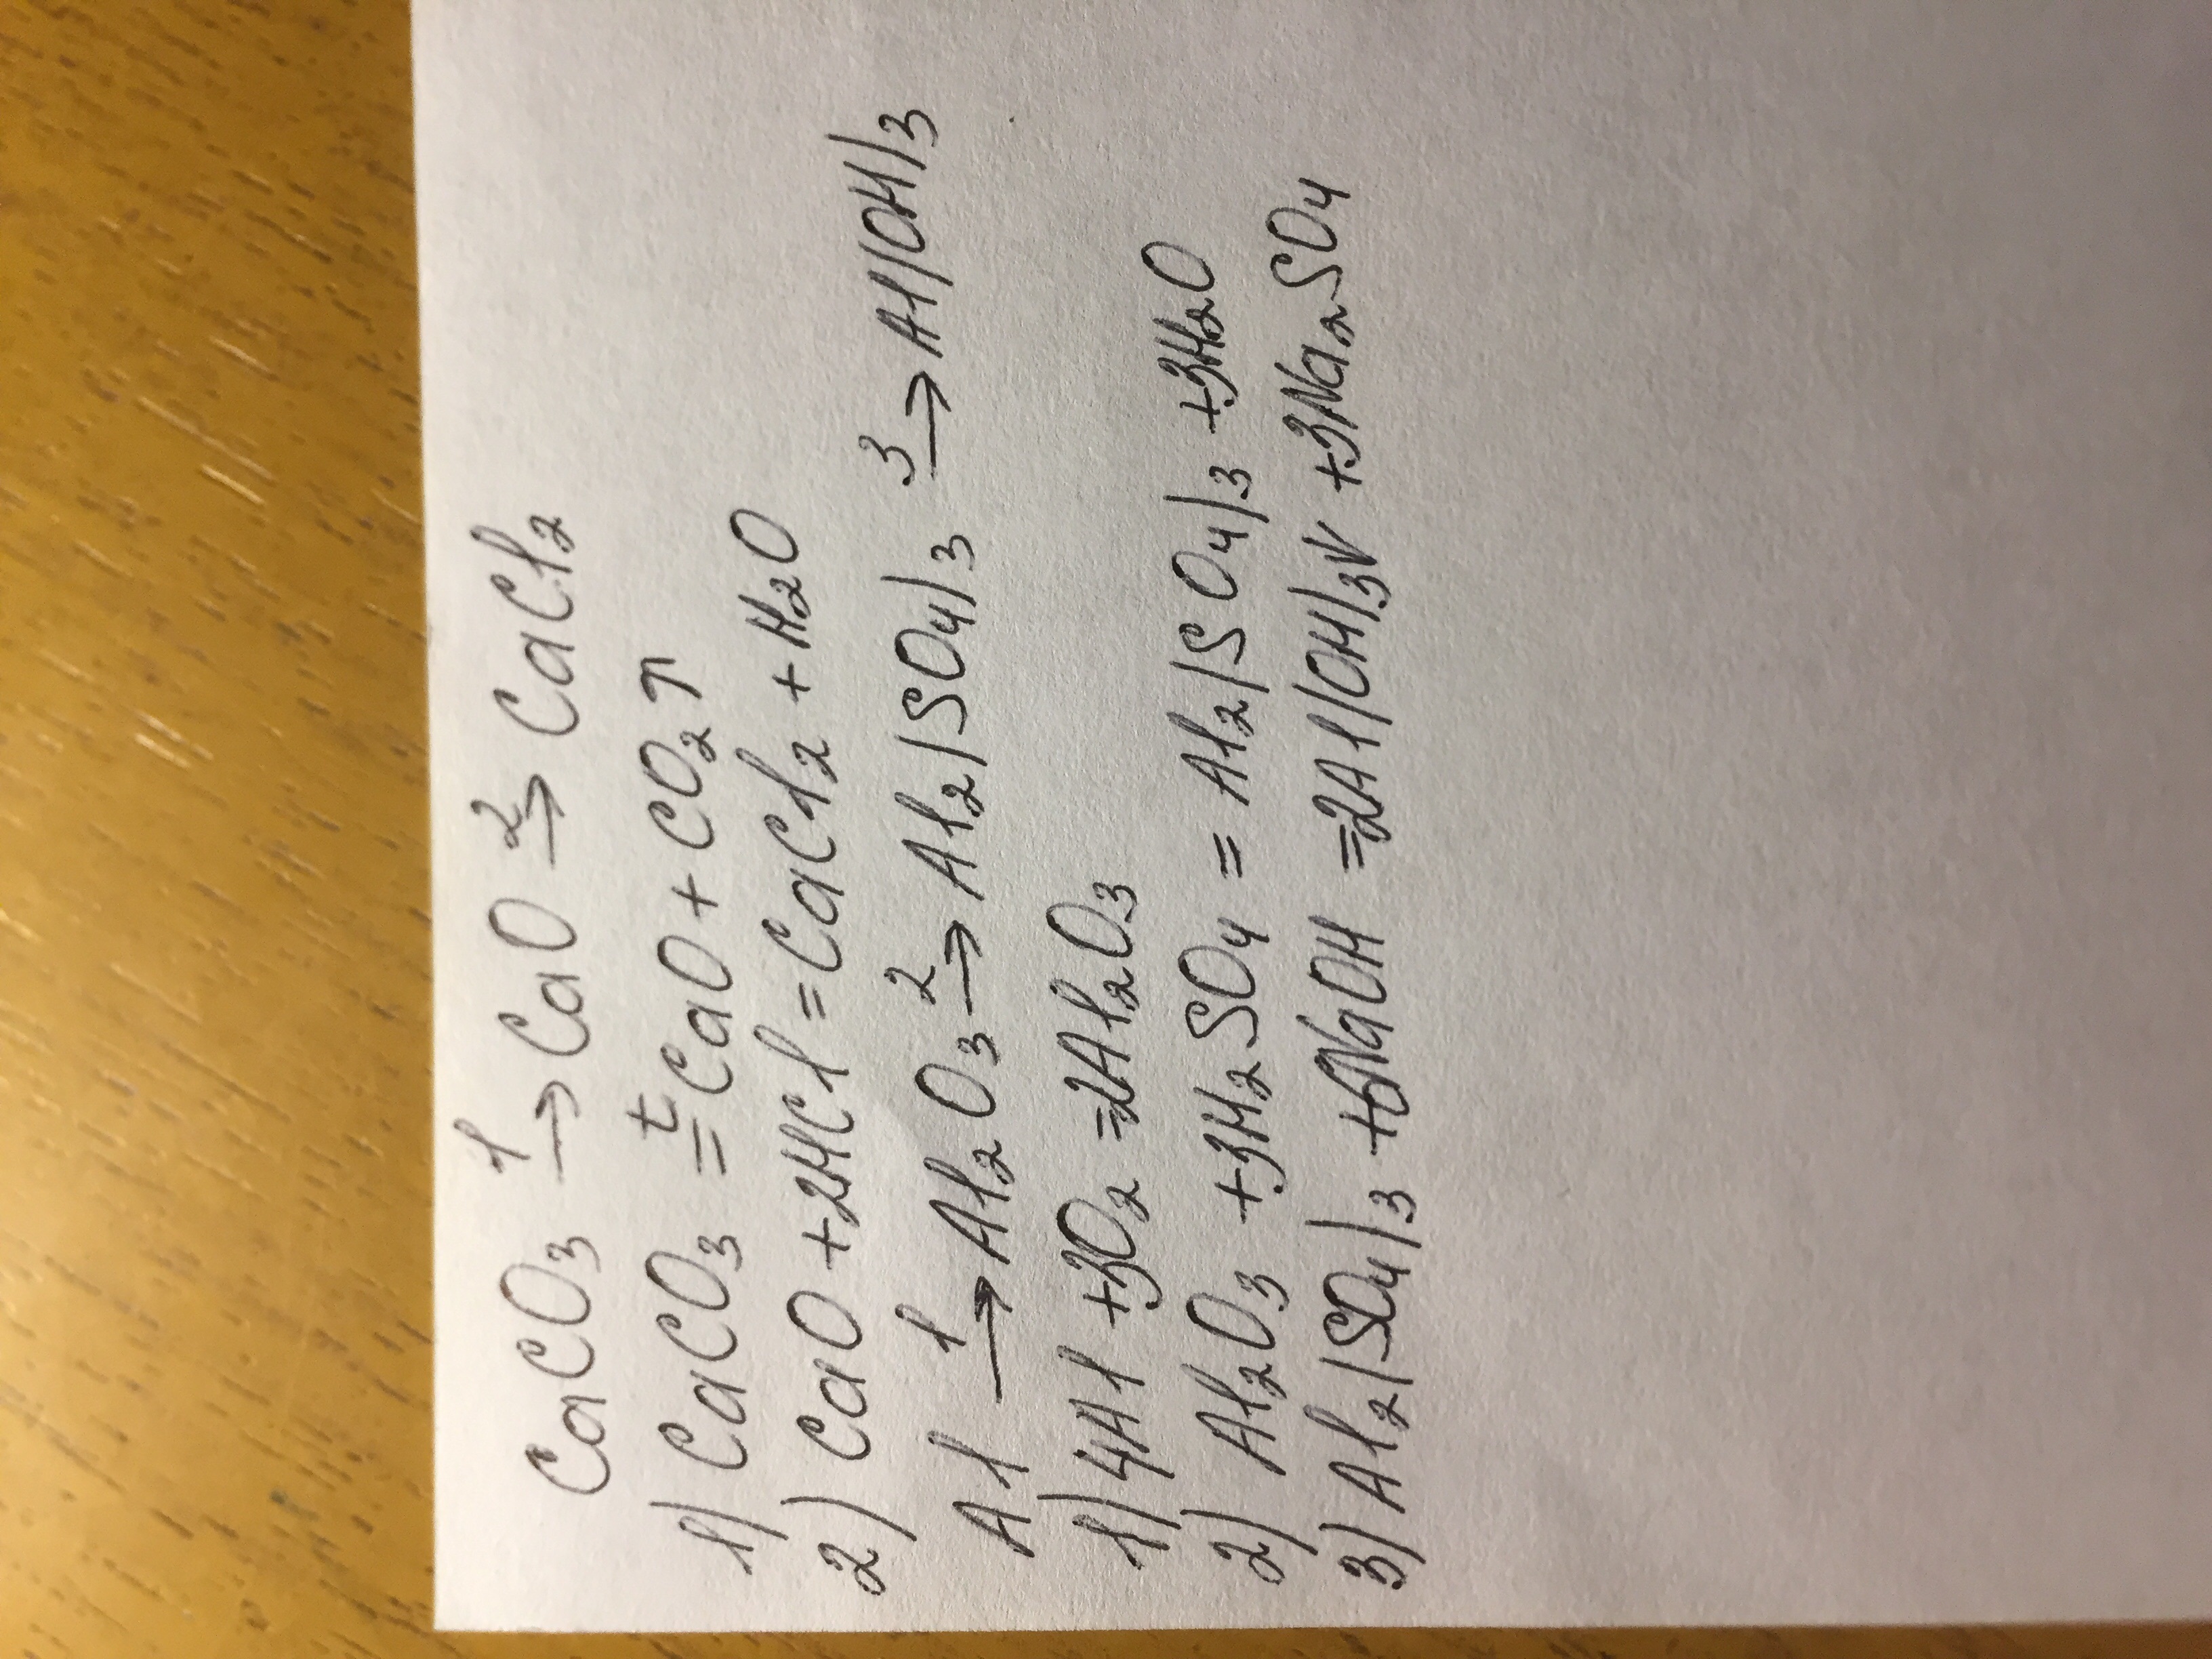 CaCO₃ →¹ CaO →² CaCl₂
1) CaCO₃ =ᵗ CaO + CO₂↑
2) CaO + 2HCl = CaCl₂ + H₂O
Al →¹ Al₂O₃ →² Al₂(SO₄)₃ →³ Al(OH)₃
1) 4Al + 3O₂ = 2Al₂O₃
2) Al₂O₃ + 3H₂SO₄ = Al₂(SO₄)₃ + 3H₂O
3) Al₂(SO₄)₃ + 6NaOH = 2Al(OH)₃↓ + 3Na₂SO₄